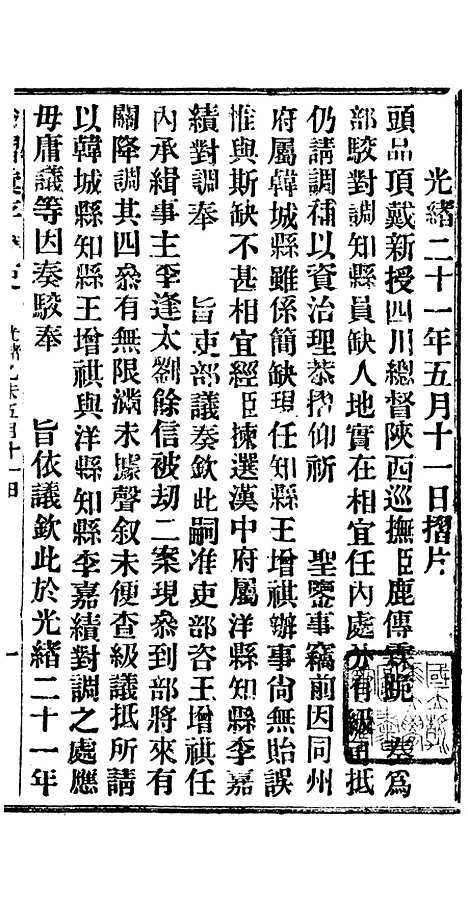 光緒二十一年五月十一日摺片
頭品頂戴新授四川總督陝西巡撫臣鹿傳霖跪 奏爲
部駮對調知縣員缺人地實在相宜任內處分有級可抵
仍請調補以資治理恭摺仰祈 聖鑒事竊前因同州
府屬韓城縣雖係簡缺現任知縣王增祺辦事尙無貽誤
惟與斯缺不甚相宜經臣揀選漢中府屬洋縣知縣李嘉
績對調奉 旨吏部議奏欽此嗣准吏部咨王增祺任
內承緝事主李逢太劉餘信被刼二案現叅到部將來有
關降調其四叅有無限滿未據聲叙未便查級議抵所請
以韓城縣知縣王增祺與洋縣知縣李嘉績對調之處應
毋庸議等因奏駮奉 旨依議欽此於光緒二十一年
光緒乙未五月十一日
一